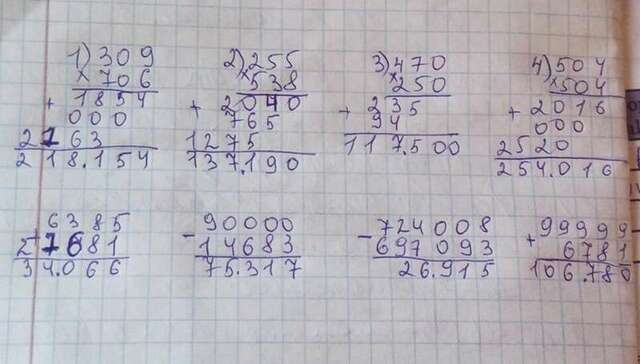 1) 309 2) 255 3) 470 4) 504
× 706 × 538 × 250 × 504
+ 1854 + 2040 + 235 + 2016
000 765 94 000
2163 1275 117.500 2520
218.154 137.190 254.016
+ 6385 - 90000 - 724008 + 99999
27681 14683 697093 6781
34.066 75.317 26.915 106.780